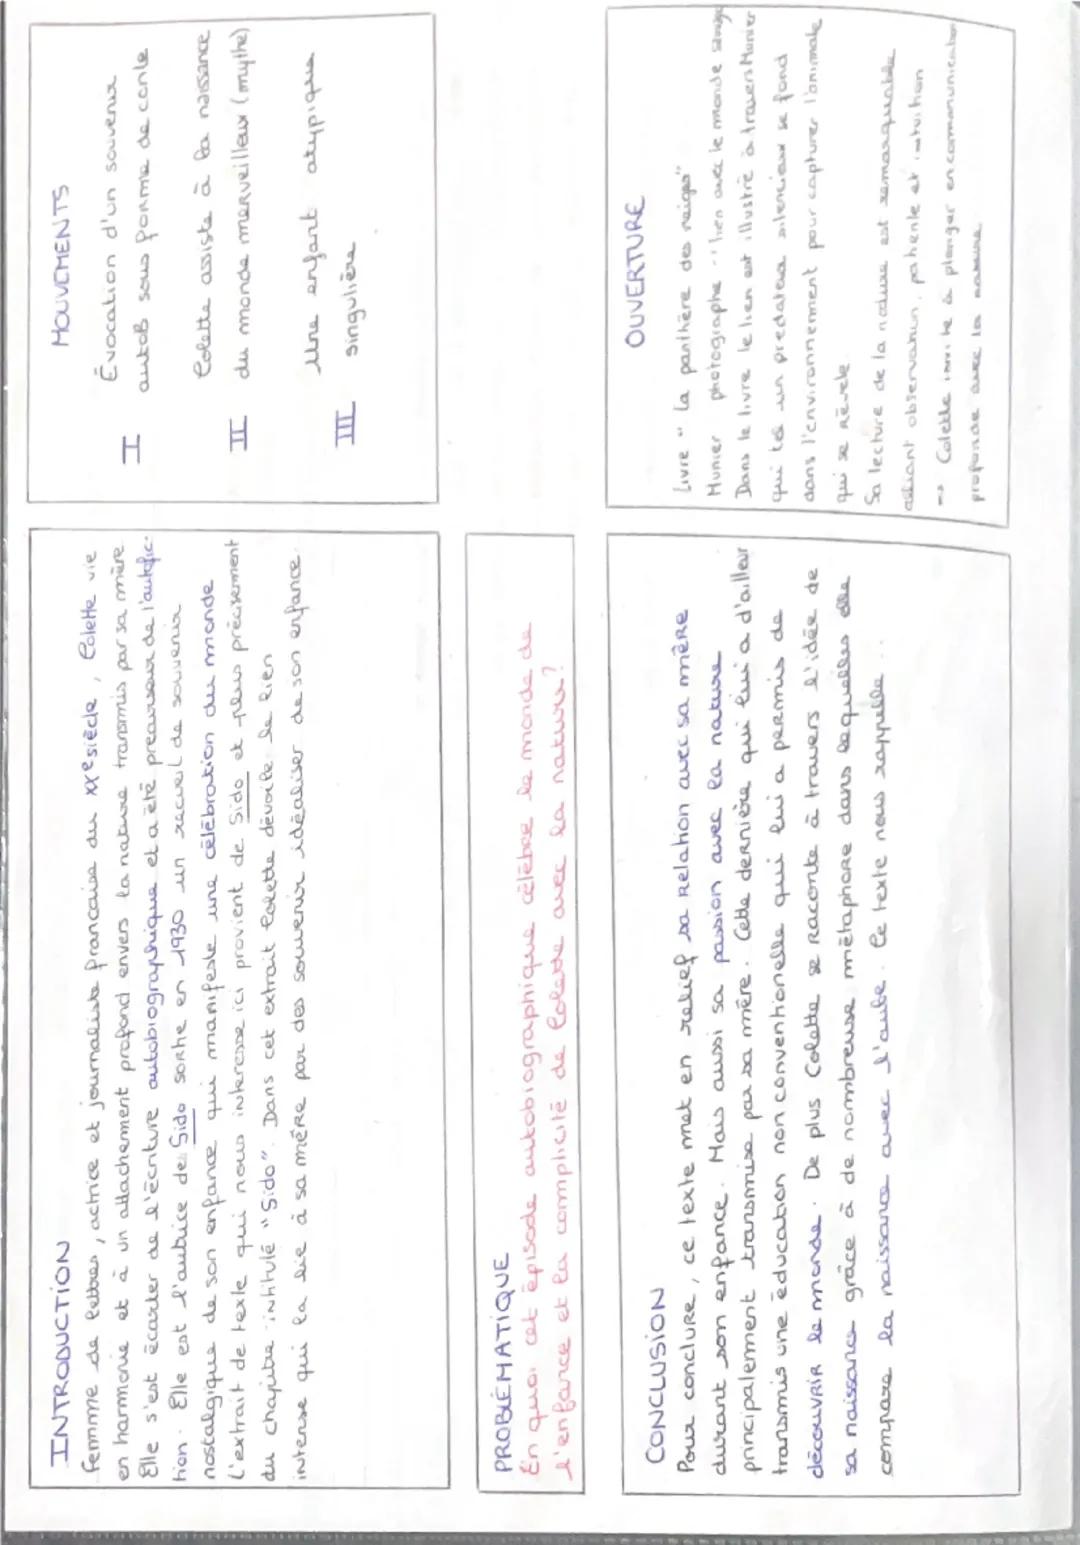 INTRODUCTION
Femme de lettres, actrice et journaliste francaise du XXe siècle, Colette vie
en harmonie et à un attachement profond envers la nature transmis par sa mère.
Elle s'est écarter de l'écriture autobiographique et a été précurseur de l'autofic-
tion. Elle est l'autrice de Sido sortie en 1930 un recueil de souvenir
nostalgique de son enfance qui manifeste une célébration du monde
L'extrait de texte qui nous interesse ici provient de Sido et plus précisement
du chapitre intitulé "Sido". Dans cet extrait Colette dévoile le lien
intense qui la lie à sa mère par des souvenir idéaliser de son enfance.
MOUVEMENTS
I Évocation d'un souvenir
autob sous forme de conte
Colette assiste à la naissance
II du monde merveilleux (mythe)
Une enfant atypique
III singulière
PROBLÉMATIQUE
En quoi cet épisode autobiographique célèbre le monde de
l'enfance et la complicité de Colette avec la nature?
CONCLUSION
Pour conclure, ce texte met en relief sa relation avec sa mère
durant son enfance. Mais aussi sa passion avec la nature
principalement transmise par sa mère. Cette dernière qui lui a d'ailleur
transmis une éducation non conventionelle qui lui a permis de
découvrir le monde. De plus Colette se raconte à travers l'idée de
sa naissance grâce à de nombreuse métaphore dans lequelles elle
compare la naissance avec l'aube. Ce texte nous rappelle...
OUVERTURE
Livre "la panthère des neiges"
Munier photographe : lien avec le monde sauvage
Dans le livre le lien est illustré à travers Munier
qui tel un predateur silencieux se fond
dans l'environnement pour capturer l'animale
qui se révèle.
Sa lecture de la nature est remarquable
alliant observation, patiente et intuition
→ Colette invite à plonger en communication
profonde avec la nature